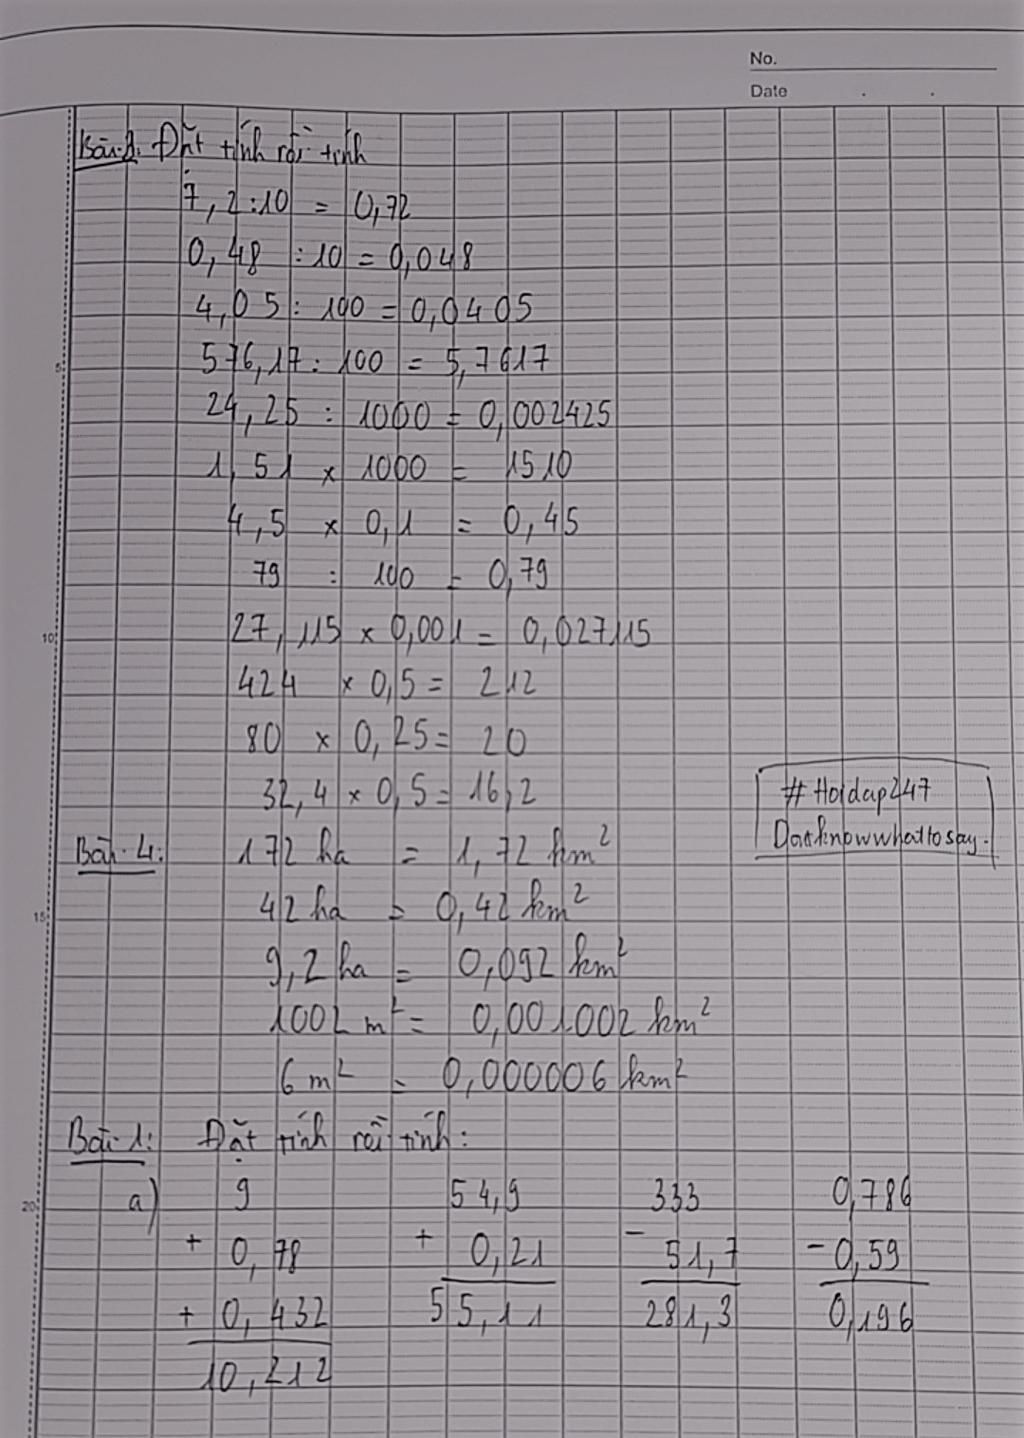 No.
Date
Bài 3. Đặt tính rồi tính
7,2:10 = 0,72
0,48 :10 = 0,048
4,05: 100 = 0,0405
576,17: 100 = 5,7617
24,25 : 1000 = 0,002425
1,51 x 1000 = 1510
4,5 x 0,1 = 0,45
79 : 100 = 0,79
27,115 x 0,001 = 0,027115
424 x 0,5 = 212
80 x 0,25 = 20
32,4 x 0,5 = 16,2
#Hoidap247
Dontknowwhattosay.
Bài 4: 172 ha = 1,72 km²
42 ha = 0,42 km²
9,2 ha = 0,092 km²
1002 m² = 0,001002 km²
6 m² = 0,000006 km²
Bài 1: Đặt tính rồi tính:
a) 9 54,9 333 0,786
+ 0,78 + 0,21 - 51,7 - 0,59
+ 0,432 55,11 281,3 0,196
10,212
5
10
15
20